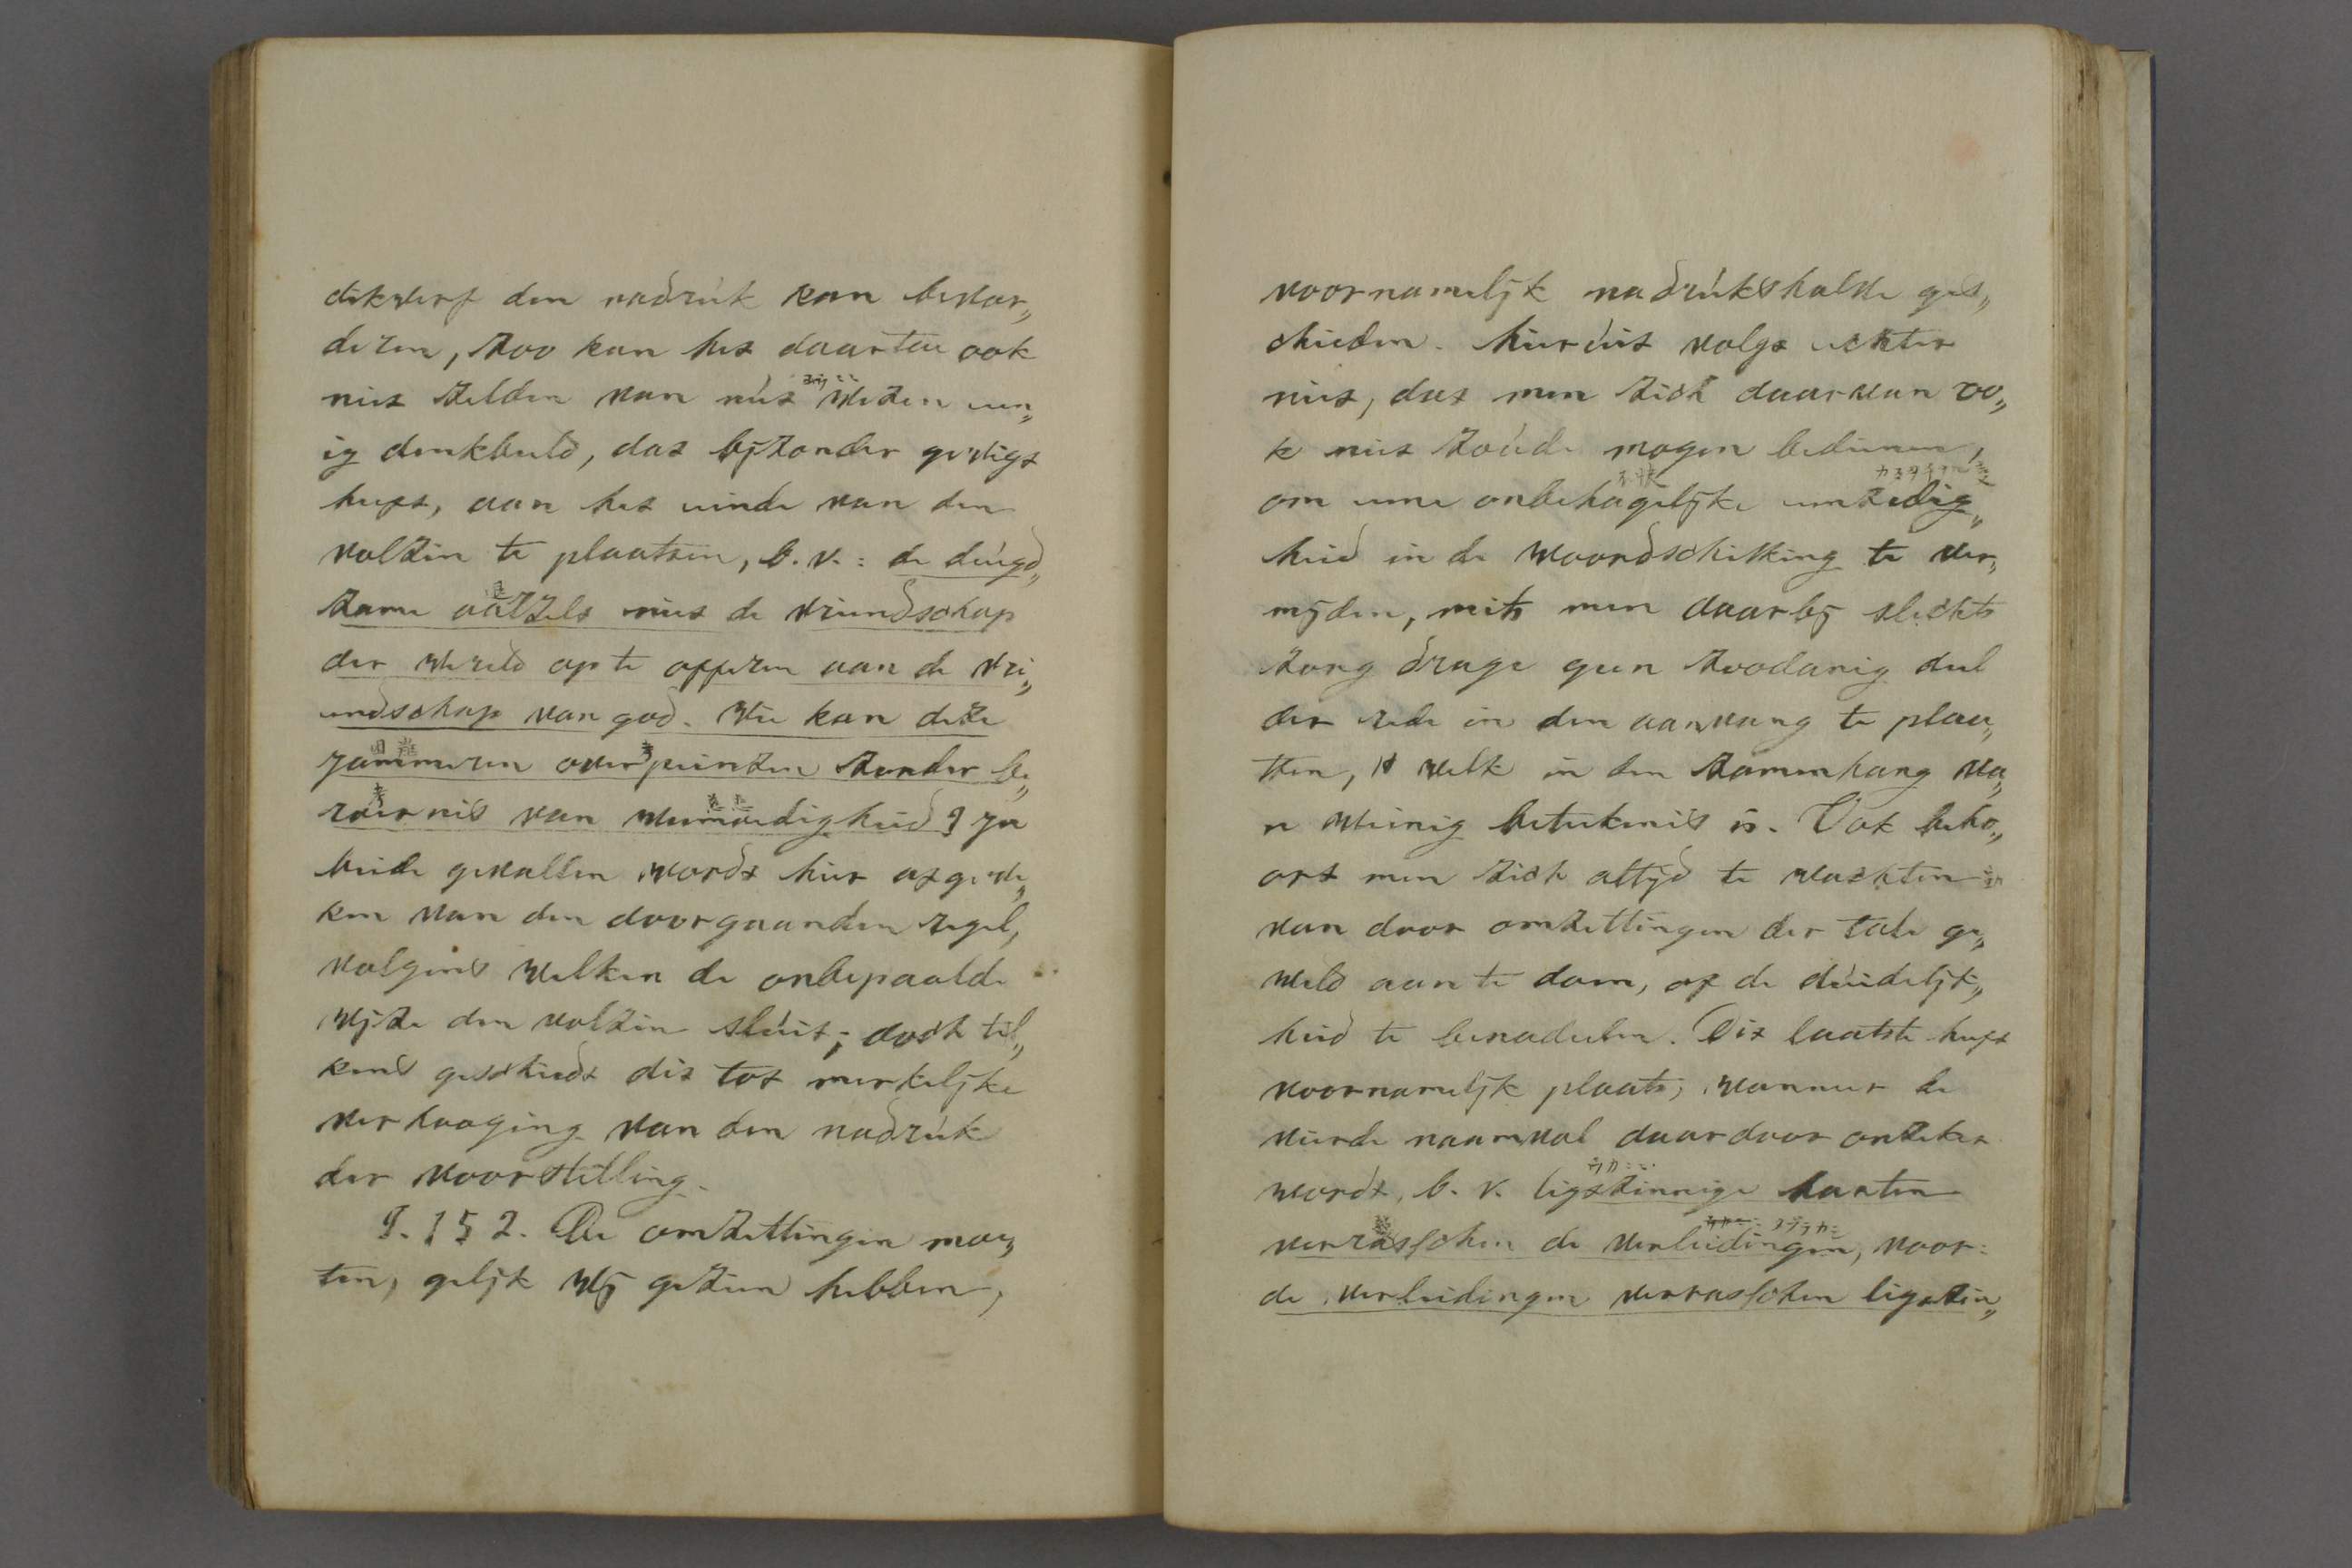 dikwerf den nadrúk kan bevor„
deren, zoo kan het daartoe ook
niet zelden van nút wezen een„
ig denkbeeld, dat bijzonder gewigt
heeft, aan het einde van den
volzin te plaatsen, b. v. : de deúgd„
zame aarzels niet de vriendschap
der wereld op te offeren aan de vri„
endschap van god. Wie kan deze
jammeren overpeinzen zonder be„
roernis van weemoedigheid? Jn
beide gevallen wordt hier afgewe„
ken van den doorgaanden regel,
volgens welken de onbepaalde
wijze den volzin slúit; doch tel„
kens geschiedt dit tot merkelijke
verhooging van den nadrúk
der voorstelling.
§. 152. De omzettingen moe„
ten, gelijk wij gezien hebben,
voornamelijk nadrúkshalve ges„
chieden. hierúit volgt echter
niet, dat men zich daarvan oo„
k niet zoúde mogen bedienen,
不快
om eene onbehagelijke eenzedig„
heid in de woordschikking te ver„
mijden, mits men daarbij slechts
zorg drage geen zoodanig deel
der rede in den aanvang te plaa„
tsen, 't welk in den zamenhang va„
n weinig beteekenis is. Ook beho„
ort men zich altijd te wachten
van door omzettingen der tale ge„
weld aan te doen, of de dúidelijk„
heid te benadeelen. Dit laatste heeft
voornamelijk plaats, wanneer de
vierde naamval daardoor onzeker
wordt, b. v. ligtzinnige harten
verrasschen de verleidingen, voor:
de verleidingen verrasschen ligtzin„